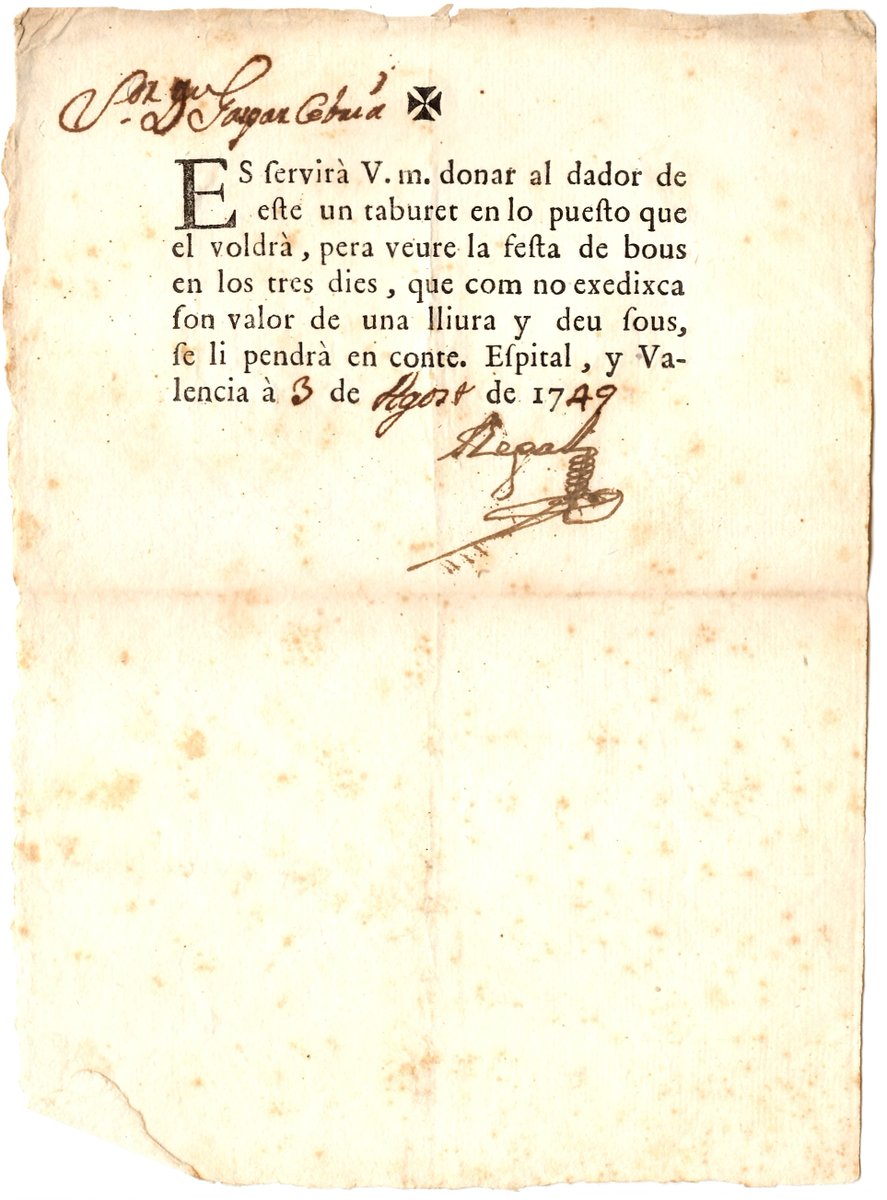 Sor. Dn. Gaspar Cebriá ✠
ES ſervirà V. m. donar al dador de
eſte un taburet en lo pueſto que
el voldrà, pera veure la feſta de bous
en los tres dies, que com no exedixca
ſon valor de una lliura y deu ſous,
ſe li pendrà en conte. Eſpital, y Va-
lencia à 3 de Agost de 1749